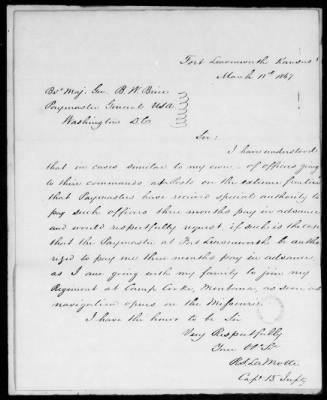 Fort Leavenworth Kansas
March 11th 1867
Bvt Maj. Gen. B. W. Brice
Paymaster General USA
Washington D.C.
Sir:
I have understood
that in cases similar to my own - of officers going
to their commands at Posts on the extreme frontier
that Paymasters have received special authority to
pay such officers three months pay in advance
and would respectfully request if such is the case
that the Paymaster at Fort Leavenworth be autho
rized to pay me three months pay in advance,
as I am going with my family to join my
Regiment at Camp Cooke, Montana, as soon as
navigation opens on the Missouri.
I have the honor to be Sir
Very Respectfully
Your Obt Svt
R.S. LaMotte
Capt 13 Infty